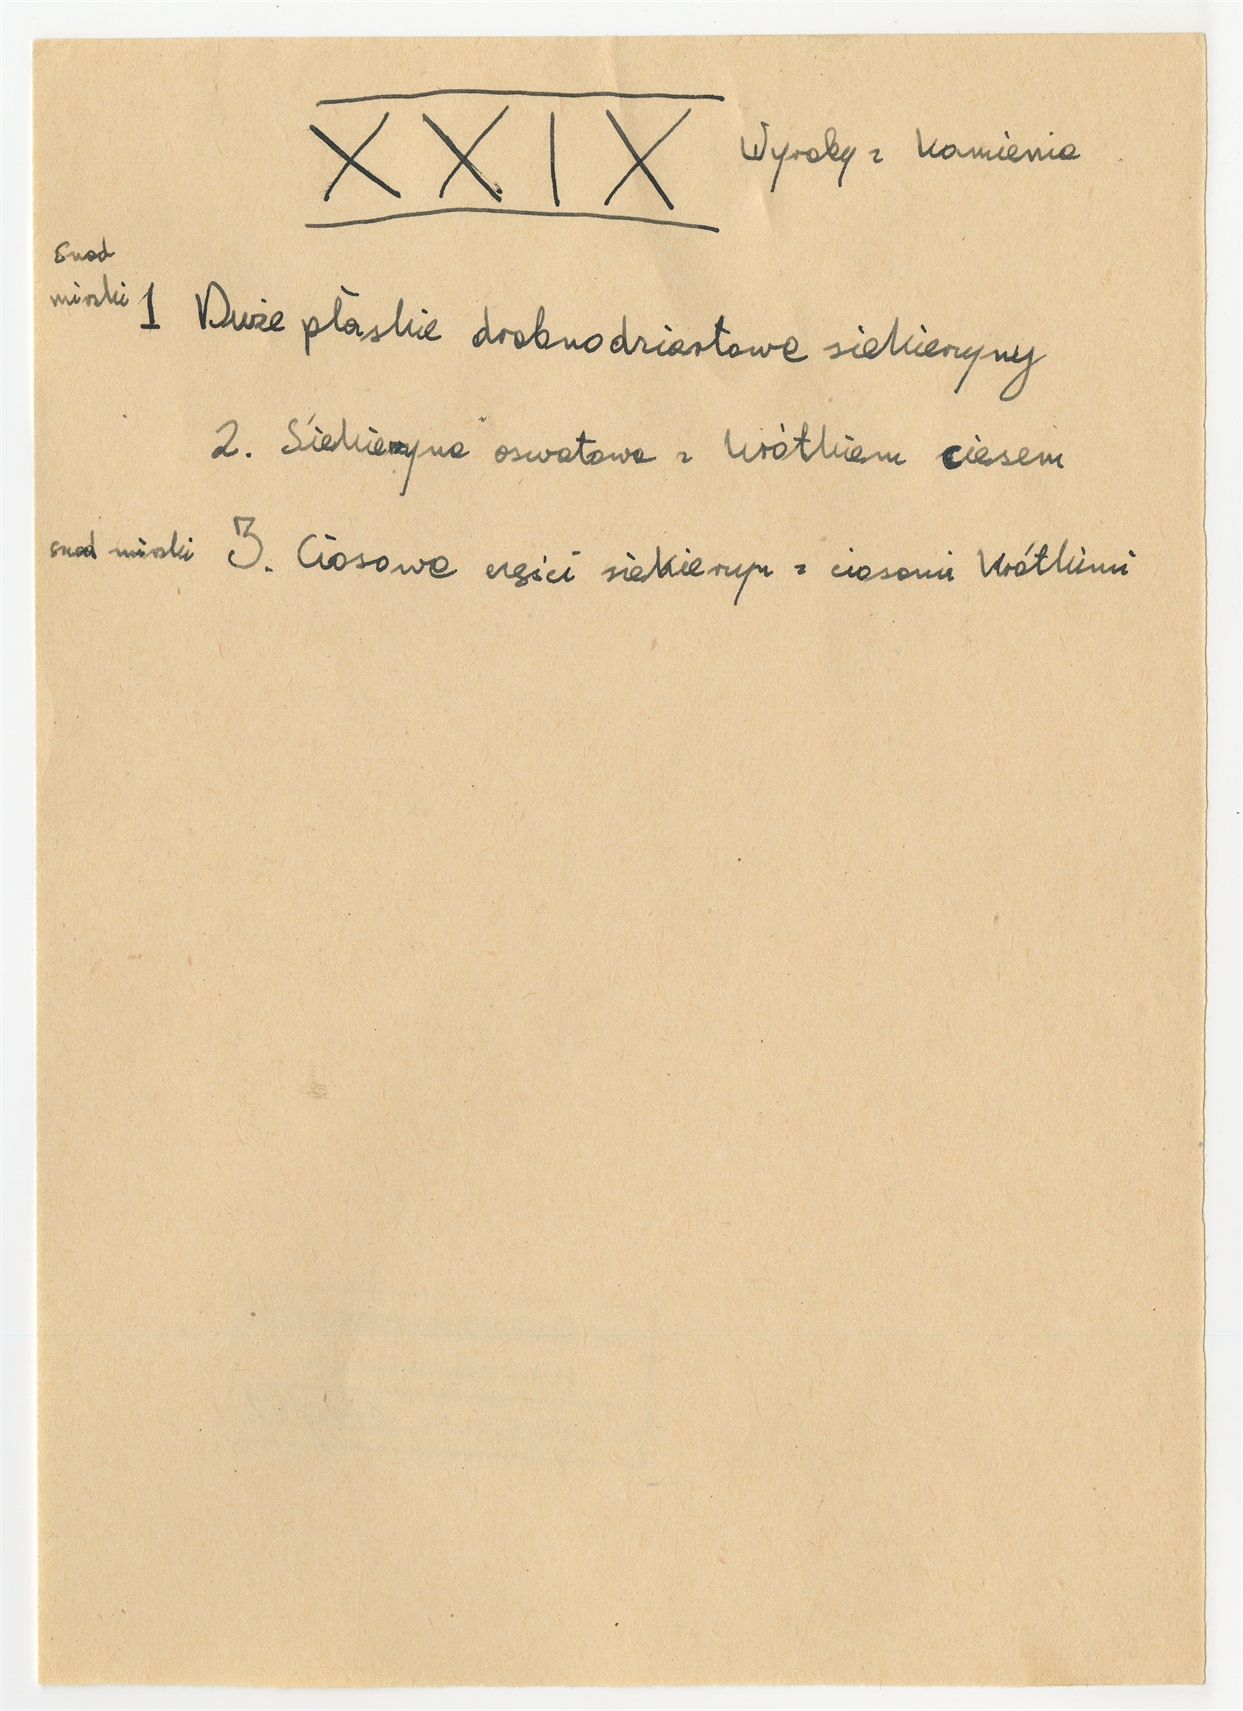 XXIX Wyroby z kamienia
snad
mirski 1 Duże płaskie drobnodziarstowe siekieryny
2. Siekieryna oswatowa z krótkiem ciesem
snad mirski 3. Ciosowe części siekieryn z ciosami krótkimi